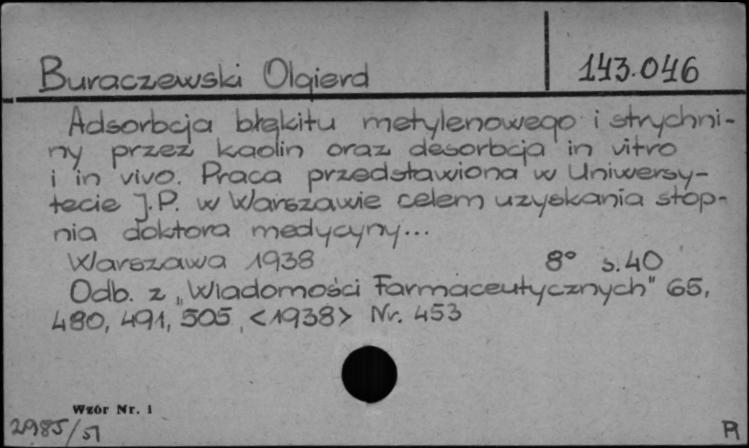 Buraczewski Olgierd 143.046
Adsorbcja błękitu metylenowego i strychni-
ny przez kaolin oraz desorbcja in vitro
i in vivo. Praca przedstawiona w Uniwersy-
tecie J.P. w Warszawie celem uzyskania stop-
nia doktora medycyny...
Warszawa 1938 8° s.40
Odb. z „Wiadomości Farmaceutycznych" 65,
480, 491, 505, <1938> Nr. 453
Wzór Nr. 1
2985/51